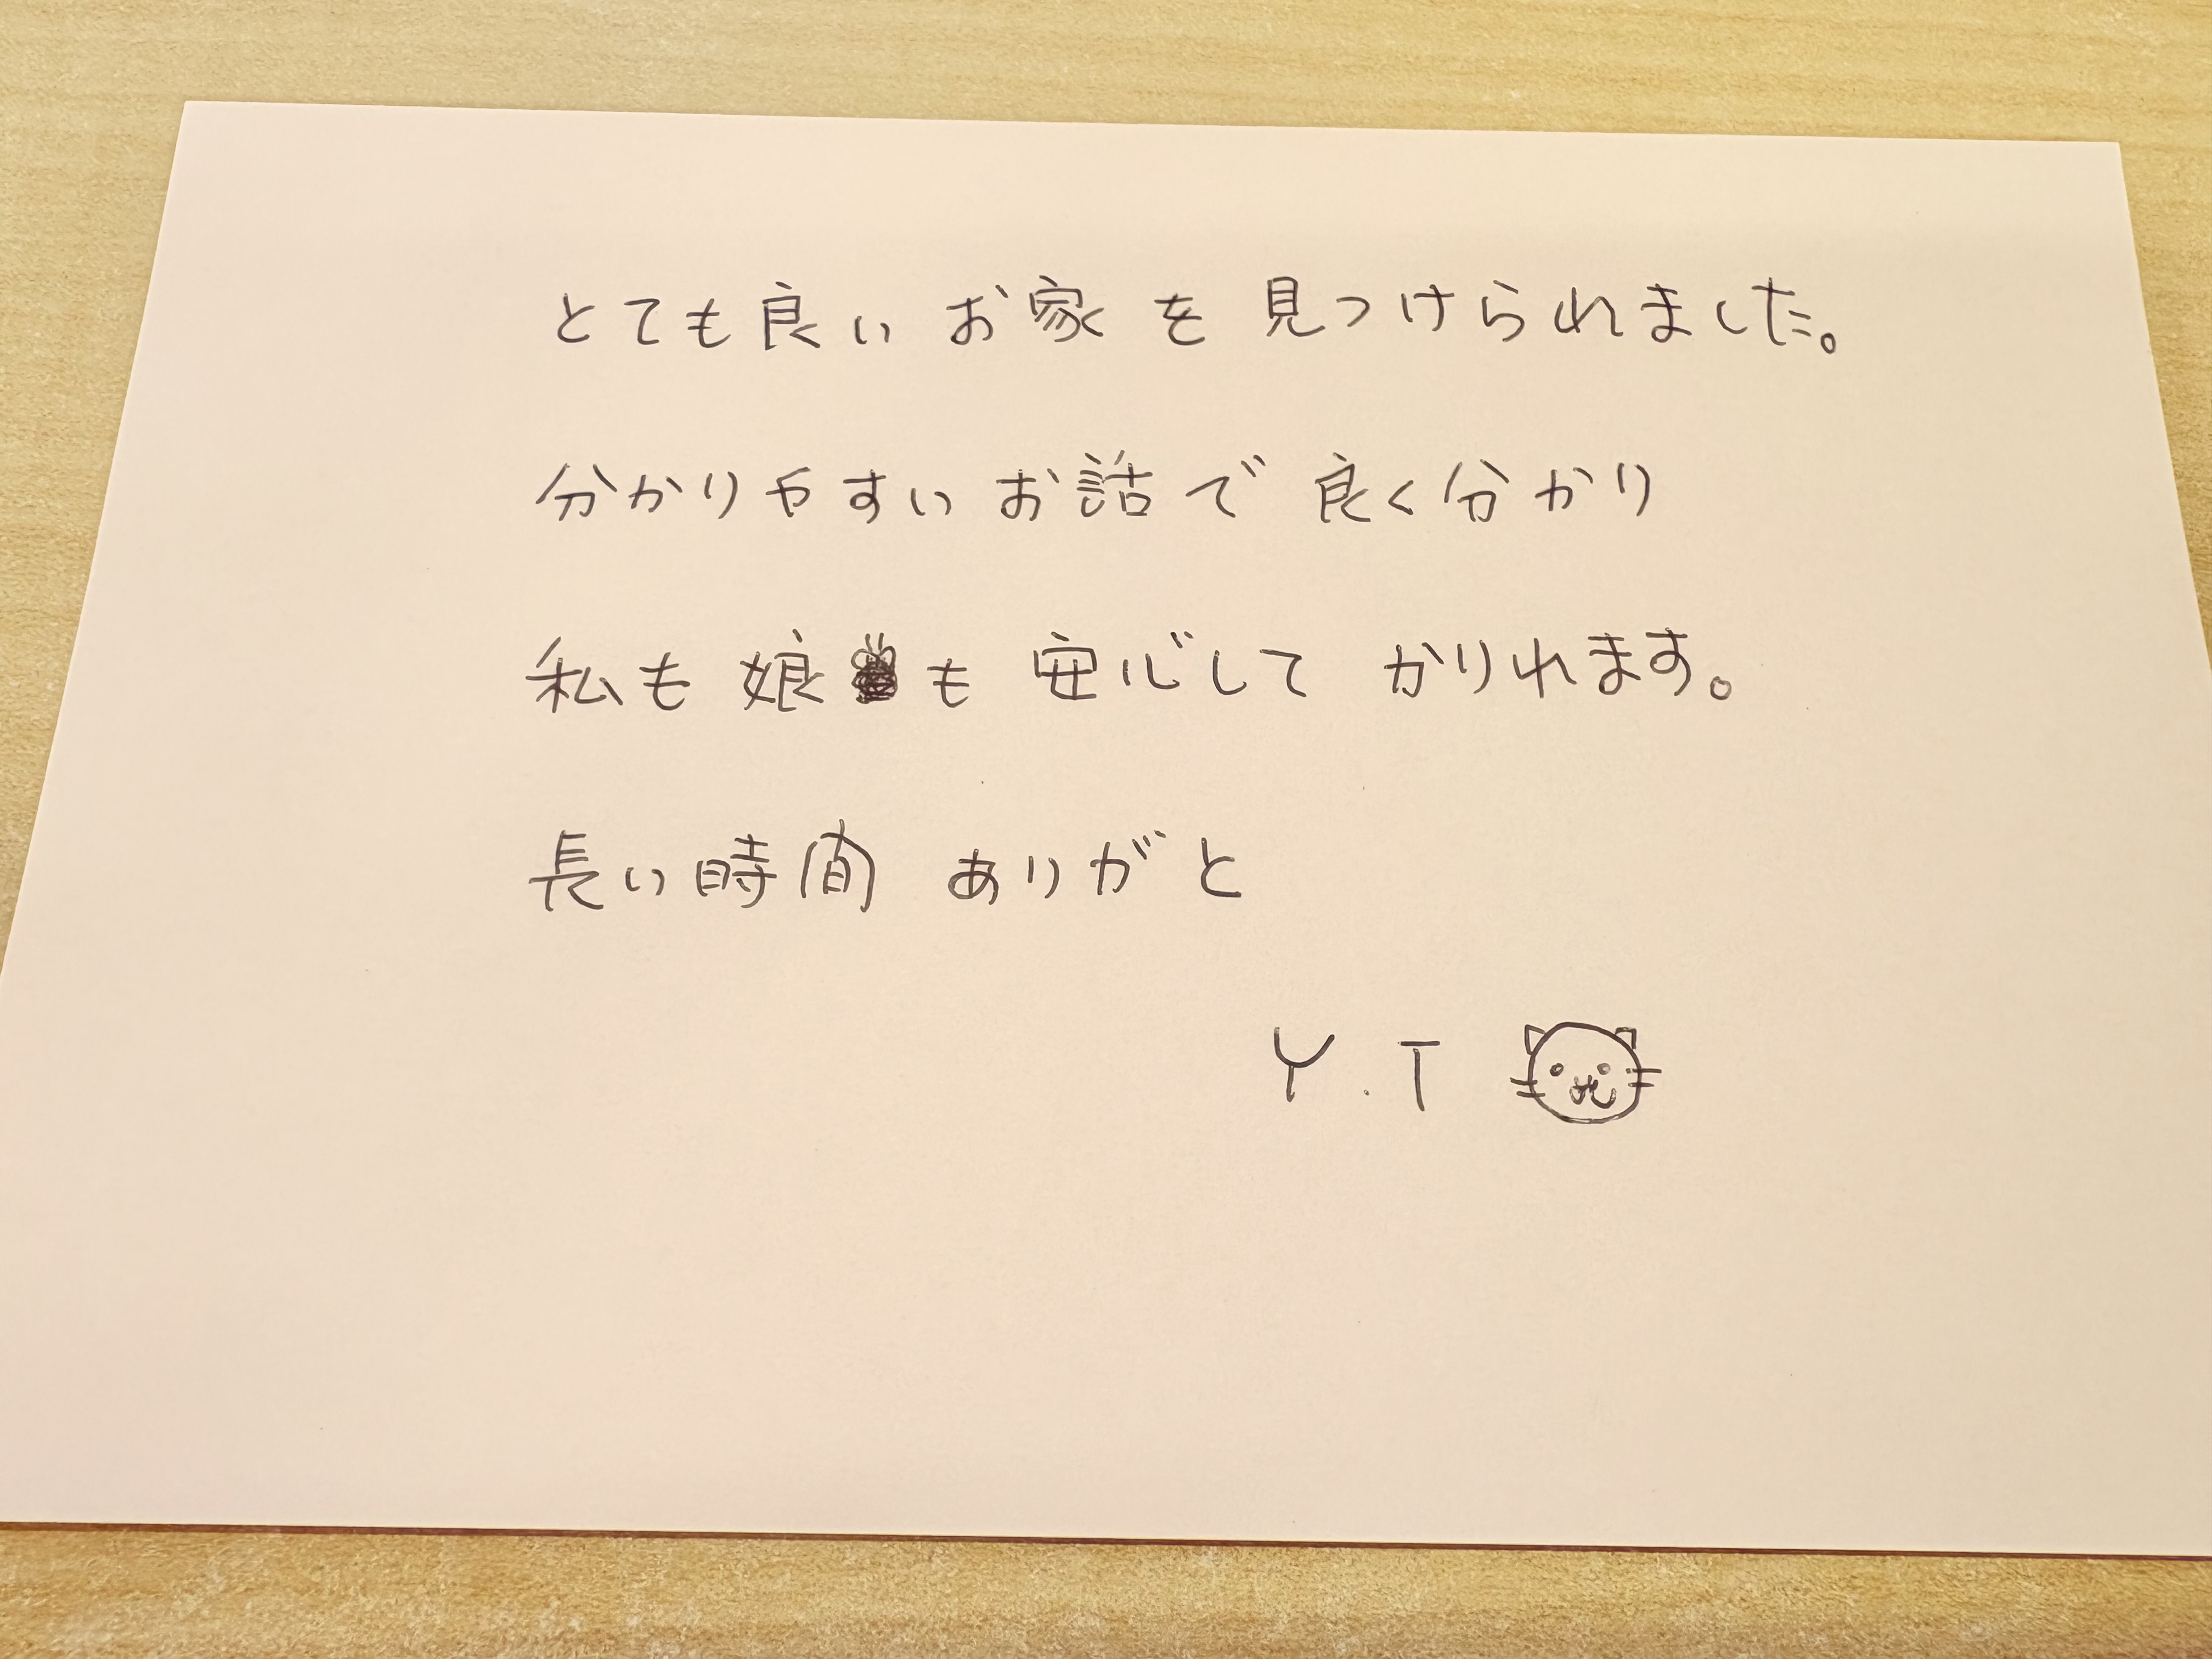 とても良いお家を見つけられました。
分かりやすいお話で良く分かり
私も娘も安心してかりれます。
長い時間ありがと
Y.T